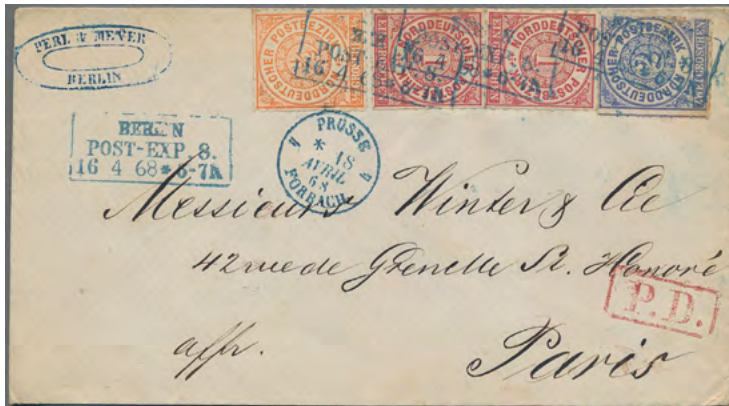 PERL & MEYER
BERLIN
NORDDEUTSCHER POSTBEZIRK
NORDDEUTSCHER POSTBEZIRK
1
NORDDEUTSCHER POSTBEZIRK
1
NORDDEUTSCHER POSTBEZIRK
2
GROSCHEN
16 4 68
BERLIN
POST-EXP. 8.
16 4 68 * 6-7A
PRUSSE
* 18
AVRIL
68
FORBACH
Messieurs Winter & Cie
42 rue de Grenelle St. Honoré
P.D.
affr.
Paris